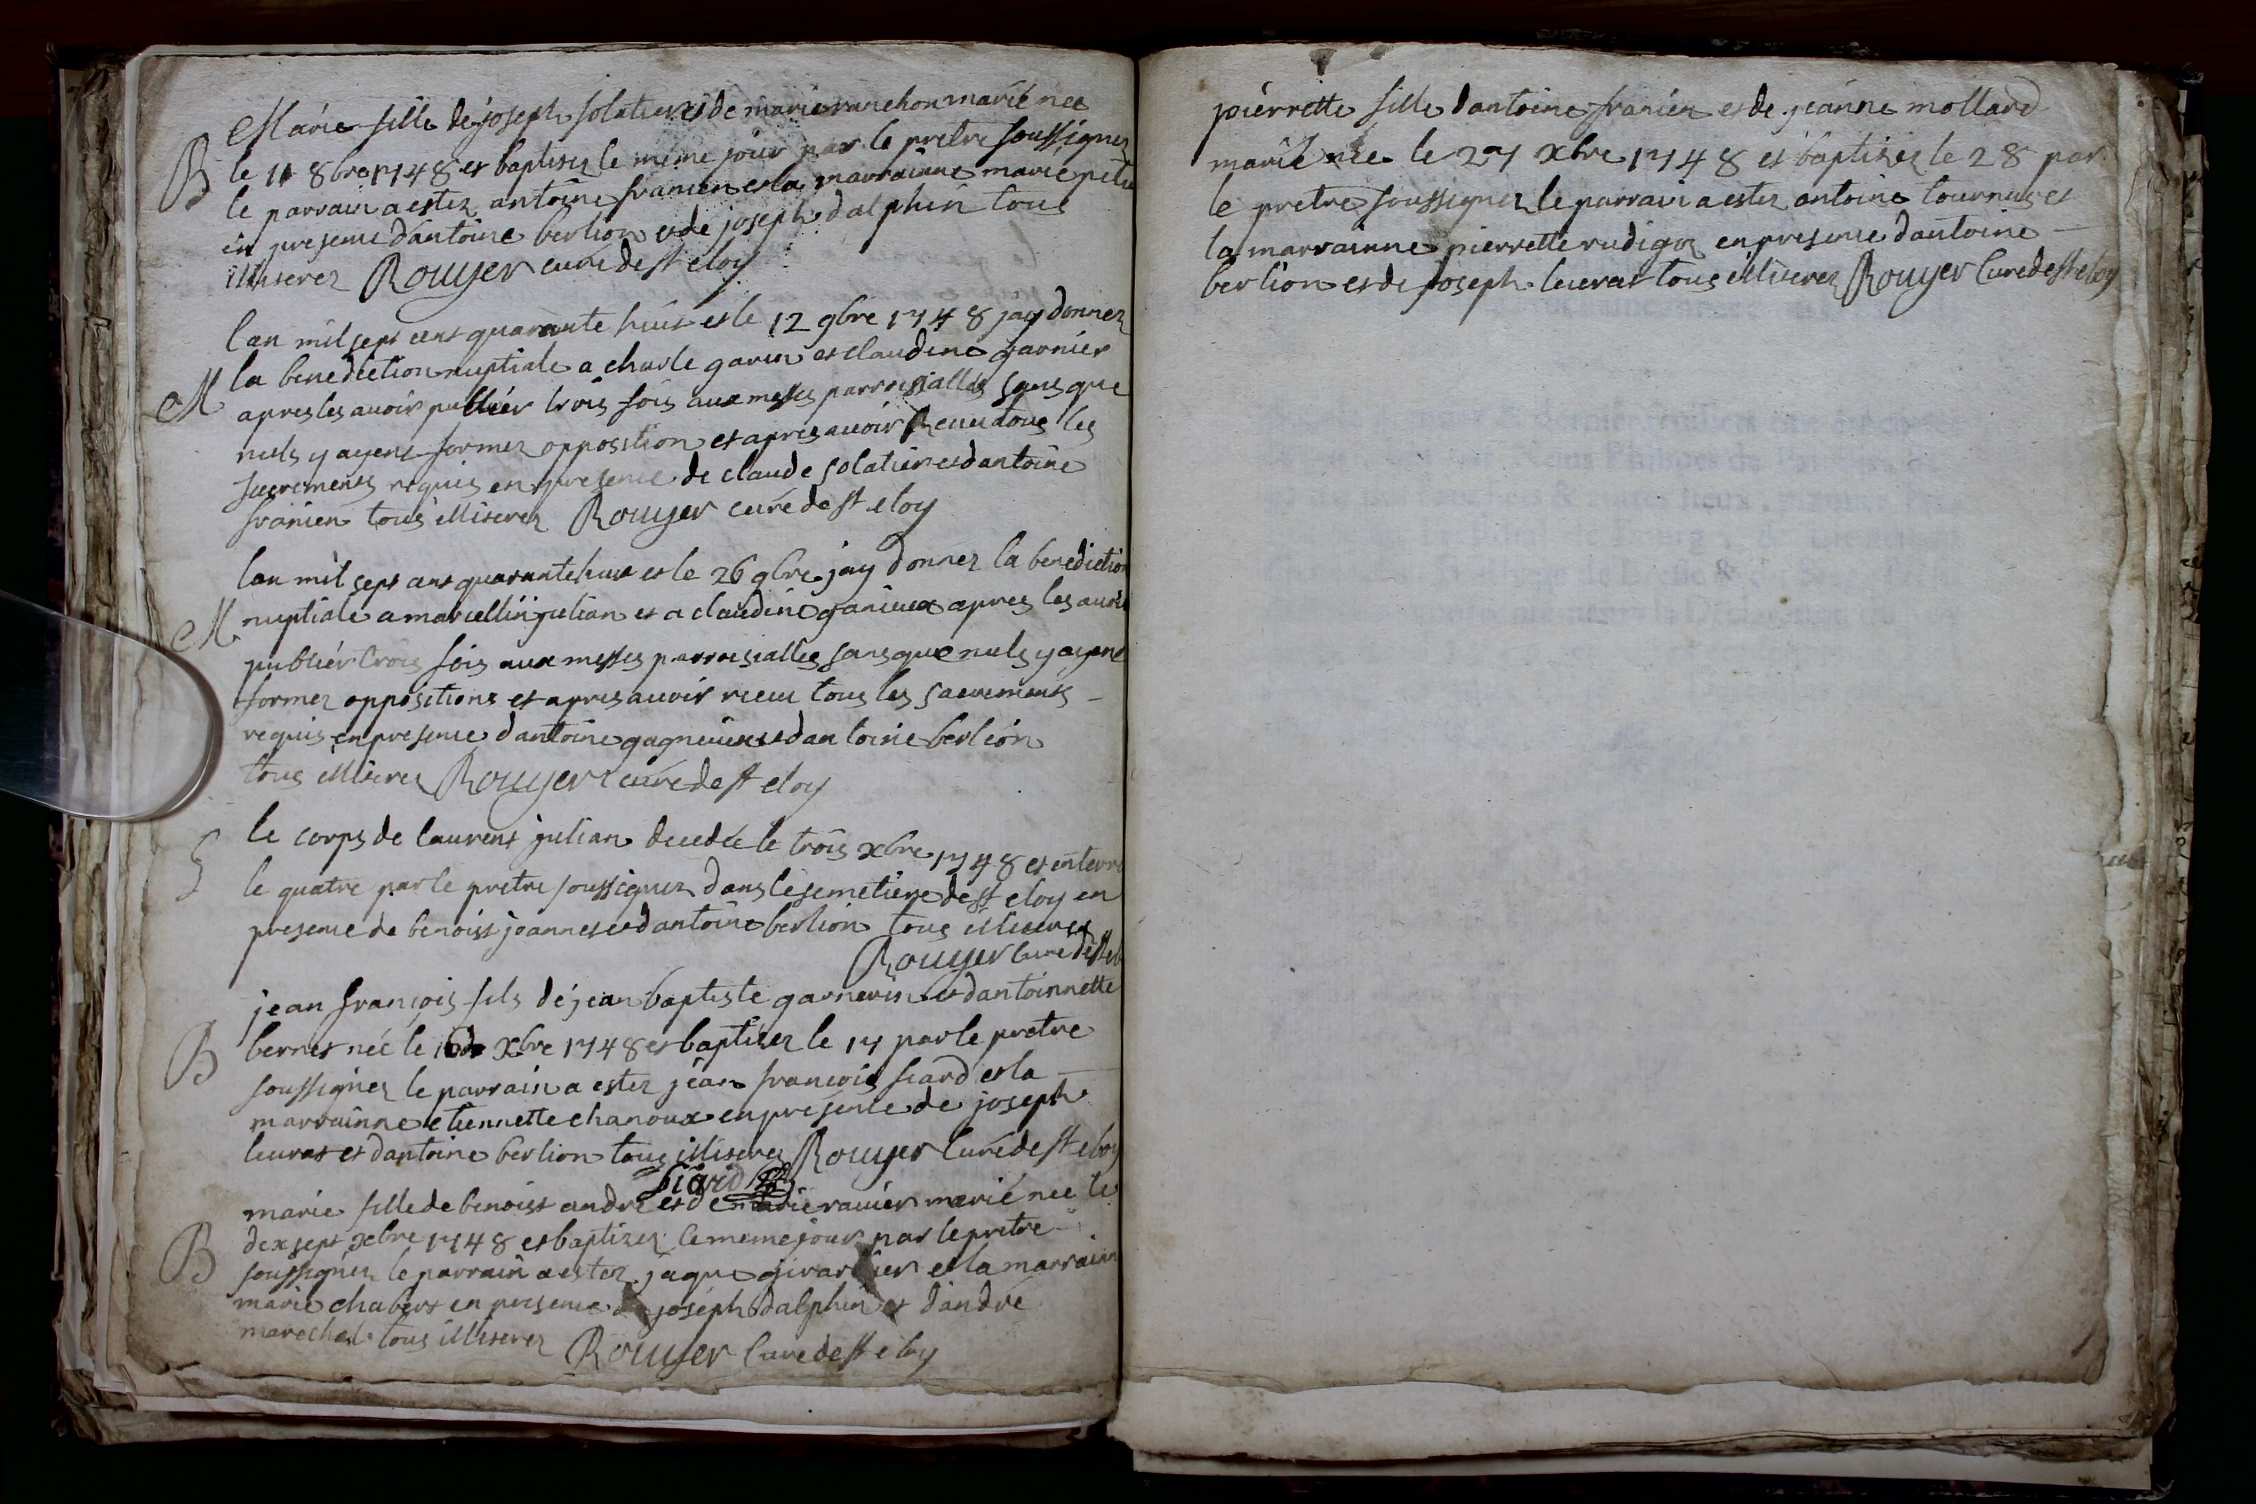 Marie fille de joseph solatier et de marie ranchon marié nee
B le 11 8bre 1748 et baptisez le meme jour par le pretre soussignez
le parrain a estez antoine franien et la marrainne marie petit
en presence d'antoine berlion et de joseph dalphin tous
illiserez Rouyer curé de st eloy
lan mil sept cent quarante huit et le 12 9bre 1748 jay donnez
la benediction nuptiale a charle garin et claudine garnier
M apres les avoir publiér trois fois aux messes parroissialles sans que
nuls y ayent formez opposition et apres avoir Receu tous les
sacrements requis en presence de claude solatier et dantoine
franien tous illiserez Rouyer curé de st eloy
lan mil sept cent quarante huit et le 26 9bre jay donnez la benediction
M nuptiale a marcellin julian et a claudine ganieux apres les avoir
publiér trois fois aux messes parroisialles sans que nuls y ayent
formez oppositions et apres avoir receu tous les sacrements
requis en presence dantoine gagneux et dantoine berlion
tous illiserez Rouyer curé de st eloy
S le corps de laurent julian decedée le trois xbre 1748 et enterré
le quatre par le pretre soussignez dans le semetiere de st eloy en
presence de benoist joannes et dantoine berlion tous illiserez
Rouyer Curé de st elo
jean françois fils de jean baptiste garnerin et dantoinnette
B bernet née le xbre 1748 et baptisez le 17 par le pretre
soussignez le parrain a estez jean françois siard et la
marrainne etiennette chanoux en presence de joseph
leurat et dantoine berlion tous illiserez Rouyer Curé de st eloy
Siard
marie fille de benoist andré et de marie ravier marié nee le
B dixsept xbre 1748 et baptizez le meme jour par le pretre
soussignez le parrain a estez jaque girardier et la marrainne
marie chabert en presence de joseph dalphin et dandré
marechal tous illiserez Rouyer Curé de st eloy
pierrette fille dantoine franien et de jeanne mollard
marié nee le 27 xbre 1748 et baptizez le 28 par
le pretre soussignez le parrain a estez antoine tournus et
la marrainne pierrette rudigoz en presence dantoine
berlion et de joseph leurat tous illiserez Rouyer Curé de st eloy